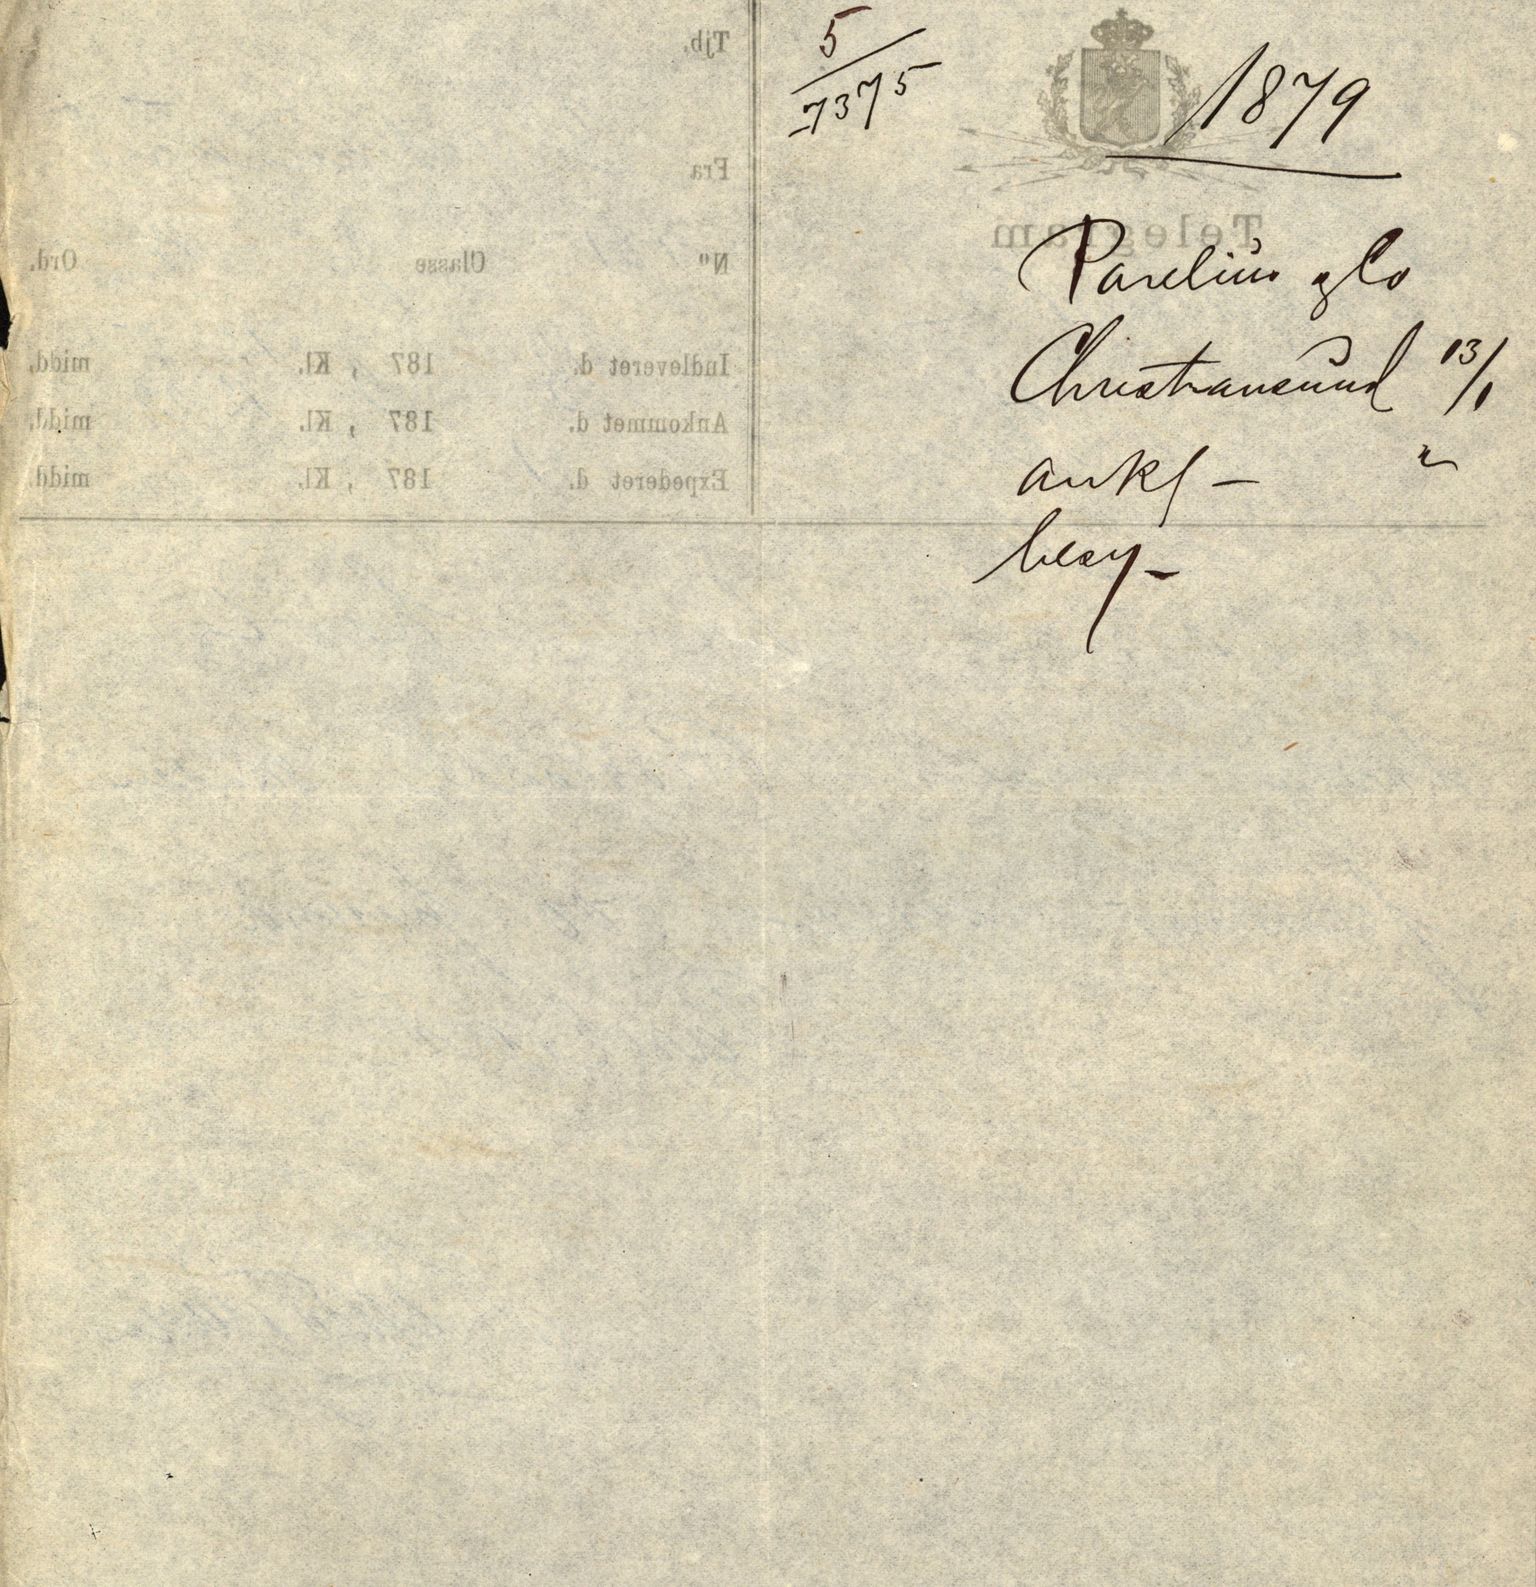 5/7375
1879
Telegram
Parelius & Co
Christiansund 13/1
ank –
besv –
Tjb.
Fra
No Classe Ord.
Indleveret d. 187 , Kl. midd.
Ankommet d. 187 , Kl. midd.
Expederet d. 187 , Kl. midd.